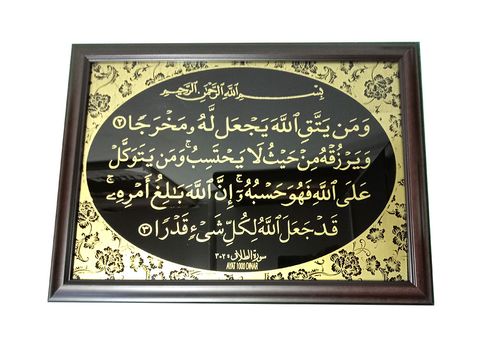 بِسْمِ اللَّهِ الرَّحْمَنِ الرَّحِيمِ
وَمَن يَتَّقِ اللَّهَ يَجْعَل لَّهُ مَخْرَجًا ﴿٢﴾
وَيَرْزُقْهُ مِنْ حَيْثُ لَا يَحْتَسِبُ ۚ وَمَن يَتَوَكَّلْ
عَلَى اللَّهِ فَهُوَ حَسْبُهُ ۚ إِنَّ اللَّهَ بَالِغُ أَمْرِهِ ۚ
قَدْ جَعَلَ اللَّهُ لِكُلِّ شَيْءٍ قَدْرًا ﴿٣﴾
سورة الطلاق ٢-٣
AYAT 1000 DINAR